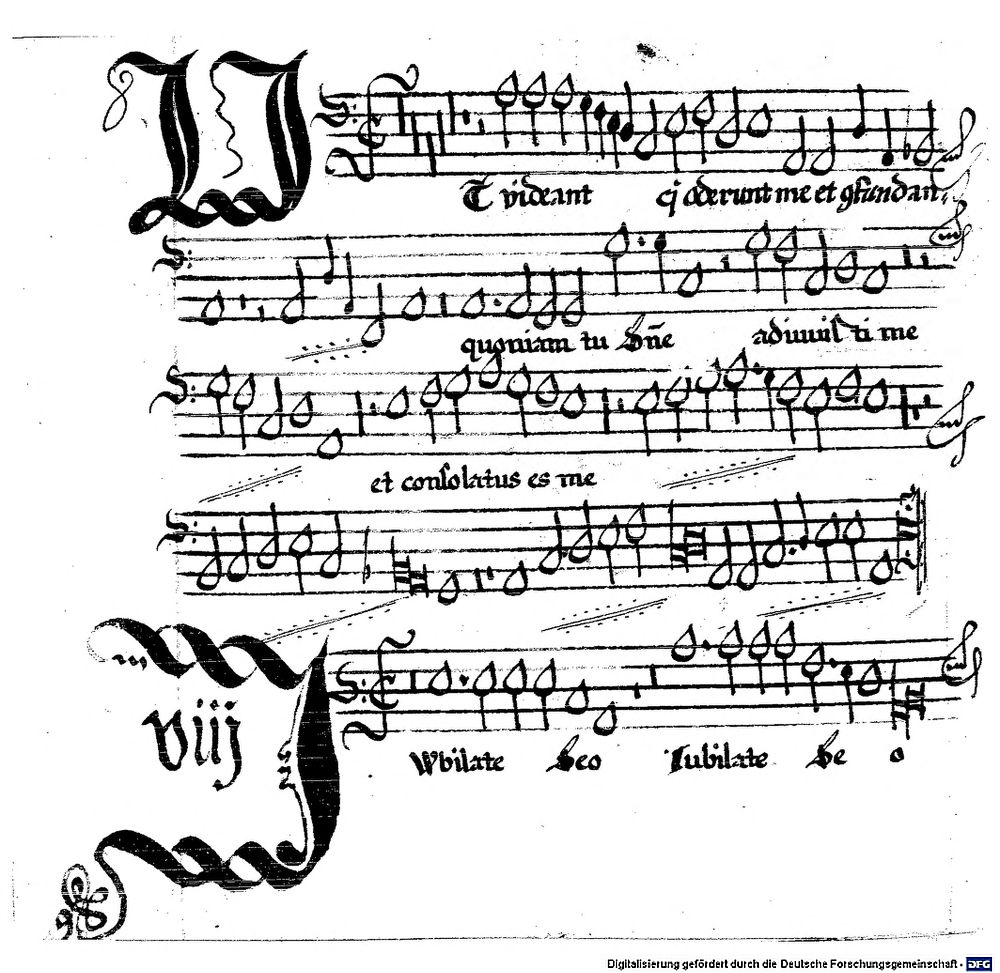 Ut videant qi oderunt me et gfundan
quoniam tu dne adiuuisti me
et consolatus es me
viij
Iubilate deo Iubilate de o
Digitalisierung gefördert durch die Deutsche Forschungsgemeinschaft - DFG